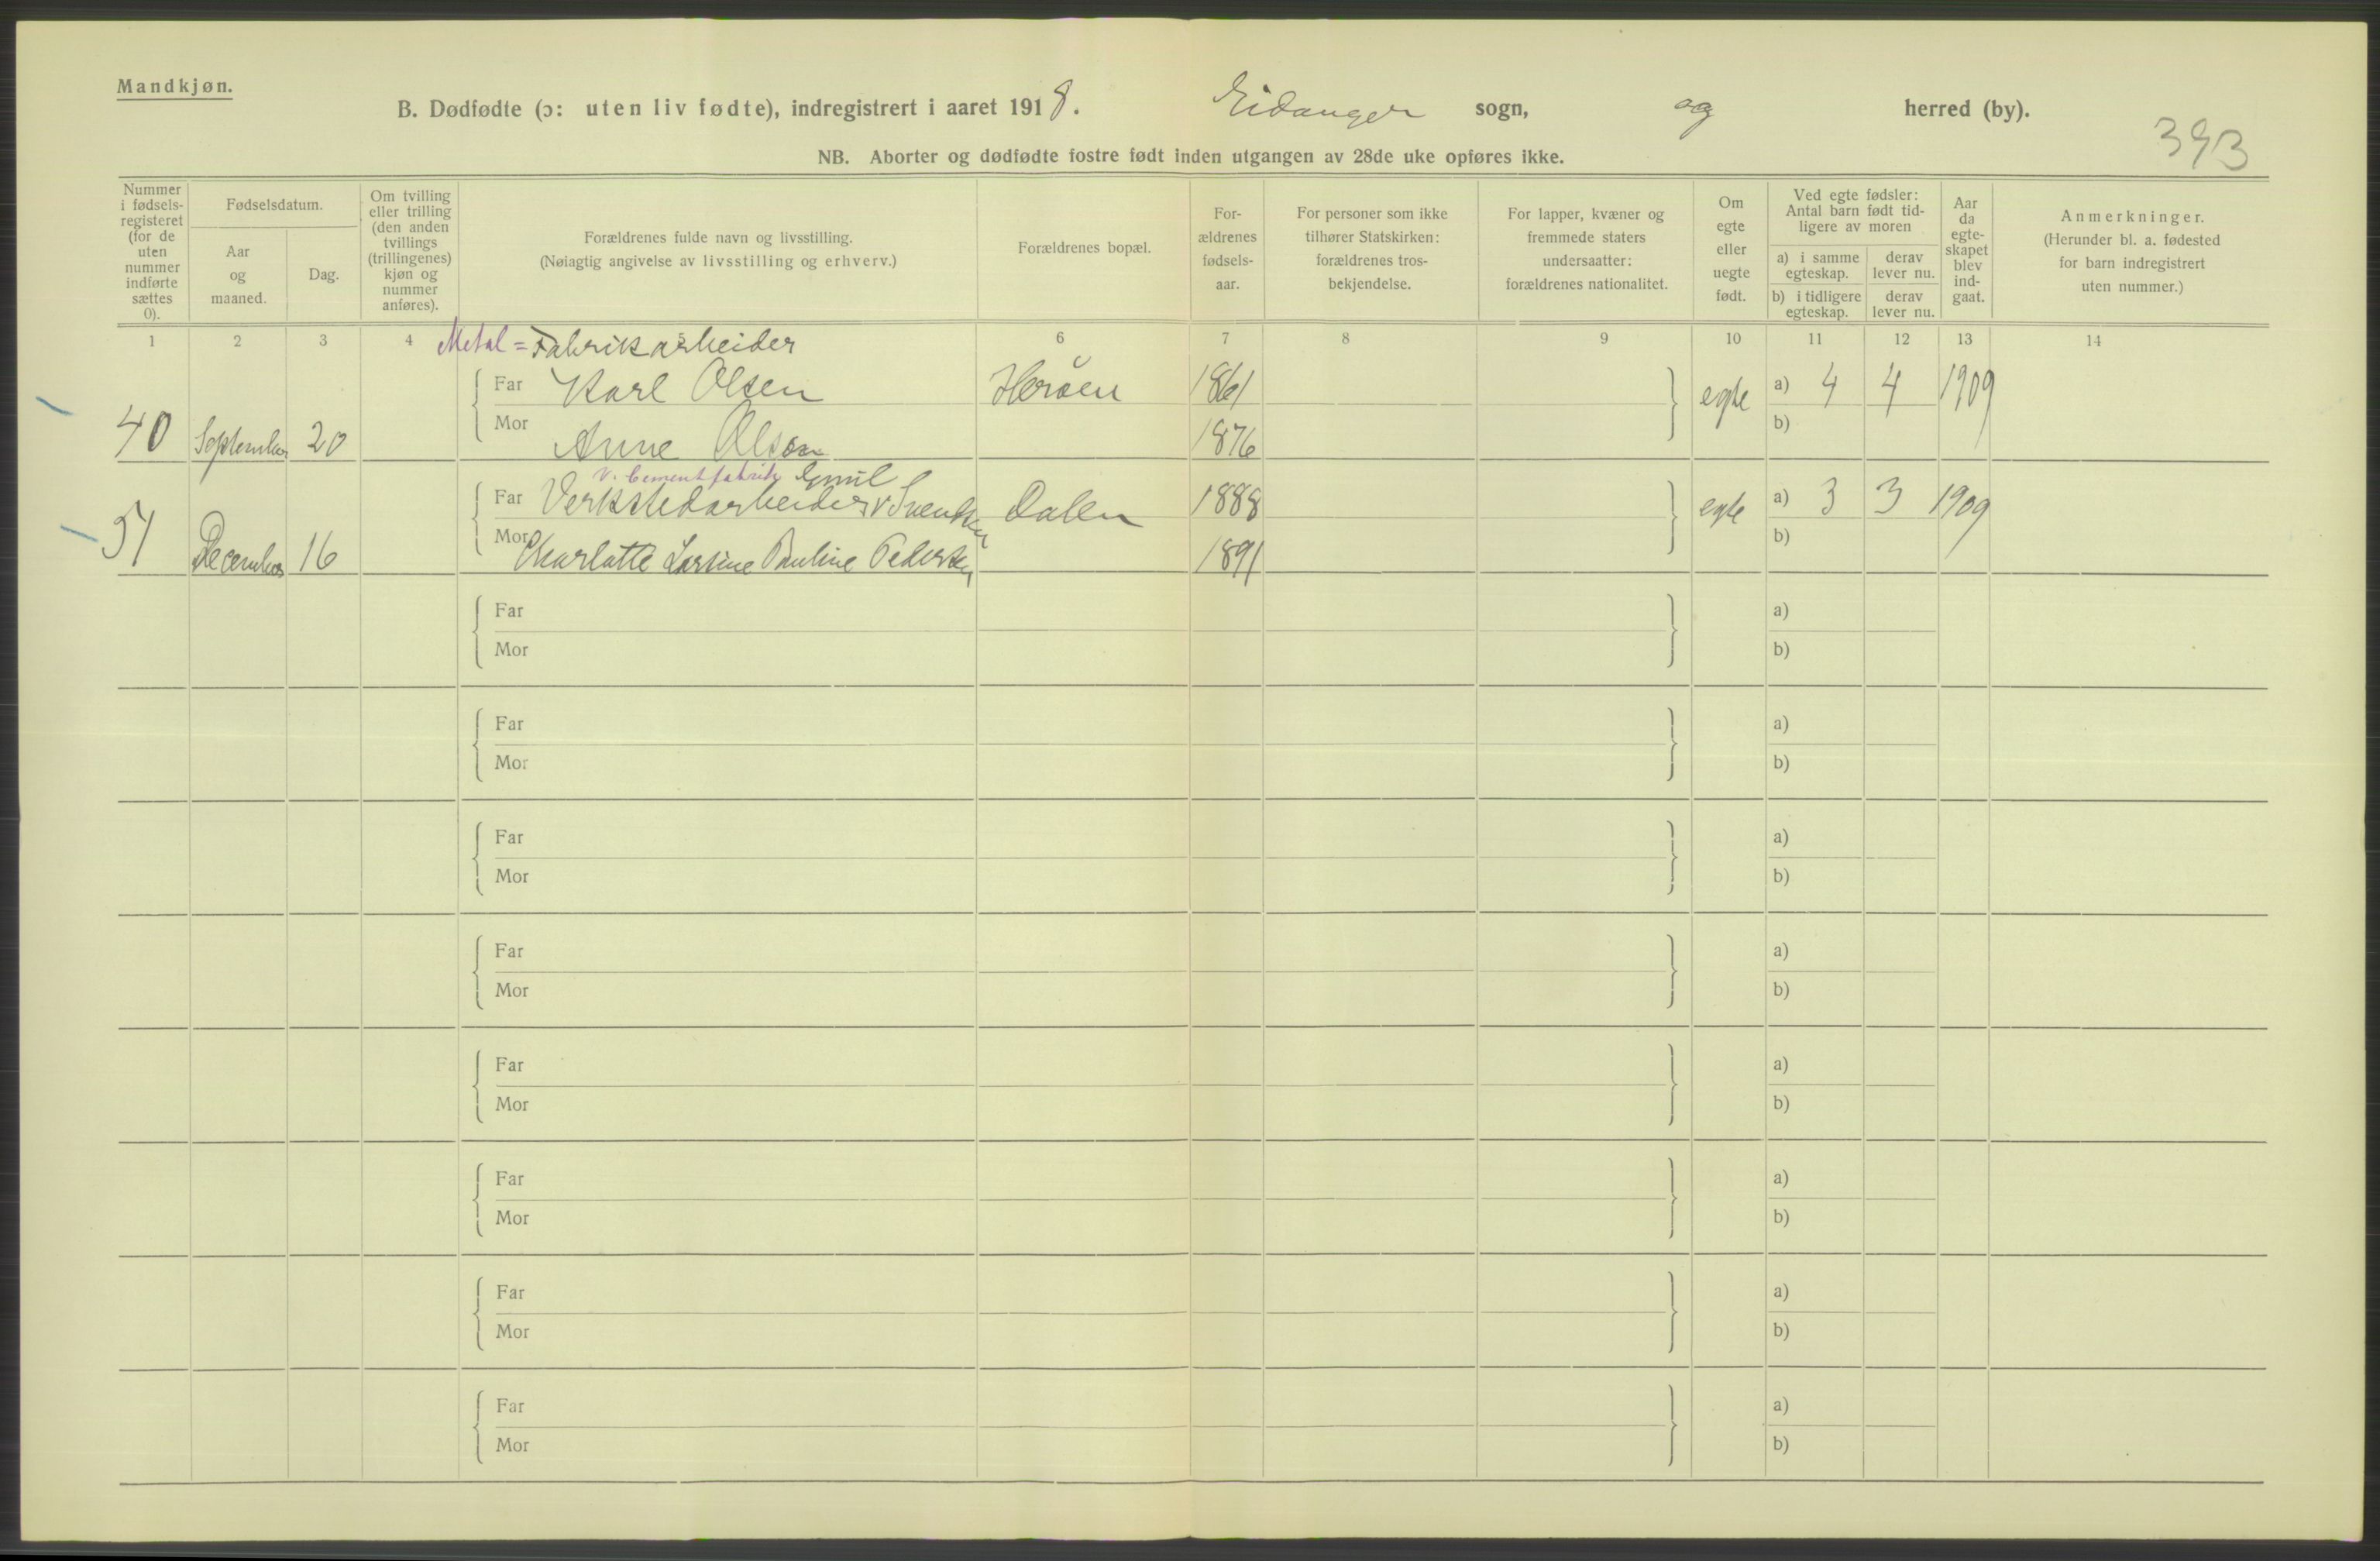 Mandkjøn.
B. Dødfødte (ɔ: uten liv fødte), indregistrert i aaret 1918. Eidanger sogn, og herred (by).
393
NB. Aborter og dødfødte fostre født inden utgangen av 28de uke opføres ikke.
Nummer i fødsels-registeret (for de uten nummer indførte sættes 0).
Fødselsdatum.
Aar og maaned.
Dag.
Om tvilling eller trilling (den anden tvillings (trillingenes) kjøn og nummer anføres).
Forældrenes fulde navn og livsstilling.
(Nøiagtig angivelse av livsstilling og erhverv.)
Forældrenes bopæl.
For-ældrenes fødsels-aar.
For personer som ikke tilhører Statskirken: forældrenes tros-bekjendelse.
For lapper, kvæner og fremmede staters undersaatter: forældrenes nationalitet.
Om egte eller uegte født.
Ved egte fødsler: Antal barn født tid-ligere av moren
a) i samme egteskap.
derav lever nu.
b) i tidligere egteskap.
derav lever nu.
Aar da egte-skapet blev ind-gaat.
Anmerkninger.
(Herunder bl. a. fødested for barn indregistrert uten nummer.)
1 2 3 4 6 7 8 9 10 11 12 13 14
Metal = Fabrikarbeider
Far Karl Olsen Herøen 1861 egte a) 4 4 1909
40 September 20
Mor Anne Olsen 1876 b)
v. Cementfabrik Emil
Far Verkstedarbeider Svendsen Dalen 1888 egte a) 3 3 1909
51 December 16
Mor Charlotte Larsine Pauline Pedersen 1891 b)
Far a)
Mor b)
Far a)
Mor b)
Far a)
Mor b)
Far a)
Mor b)
Far a)
Mor b)
Far a)
Mor b)
Far a)
Mor b)
Far a)
Mor b)